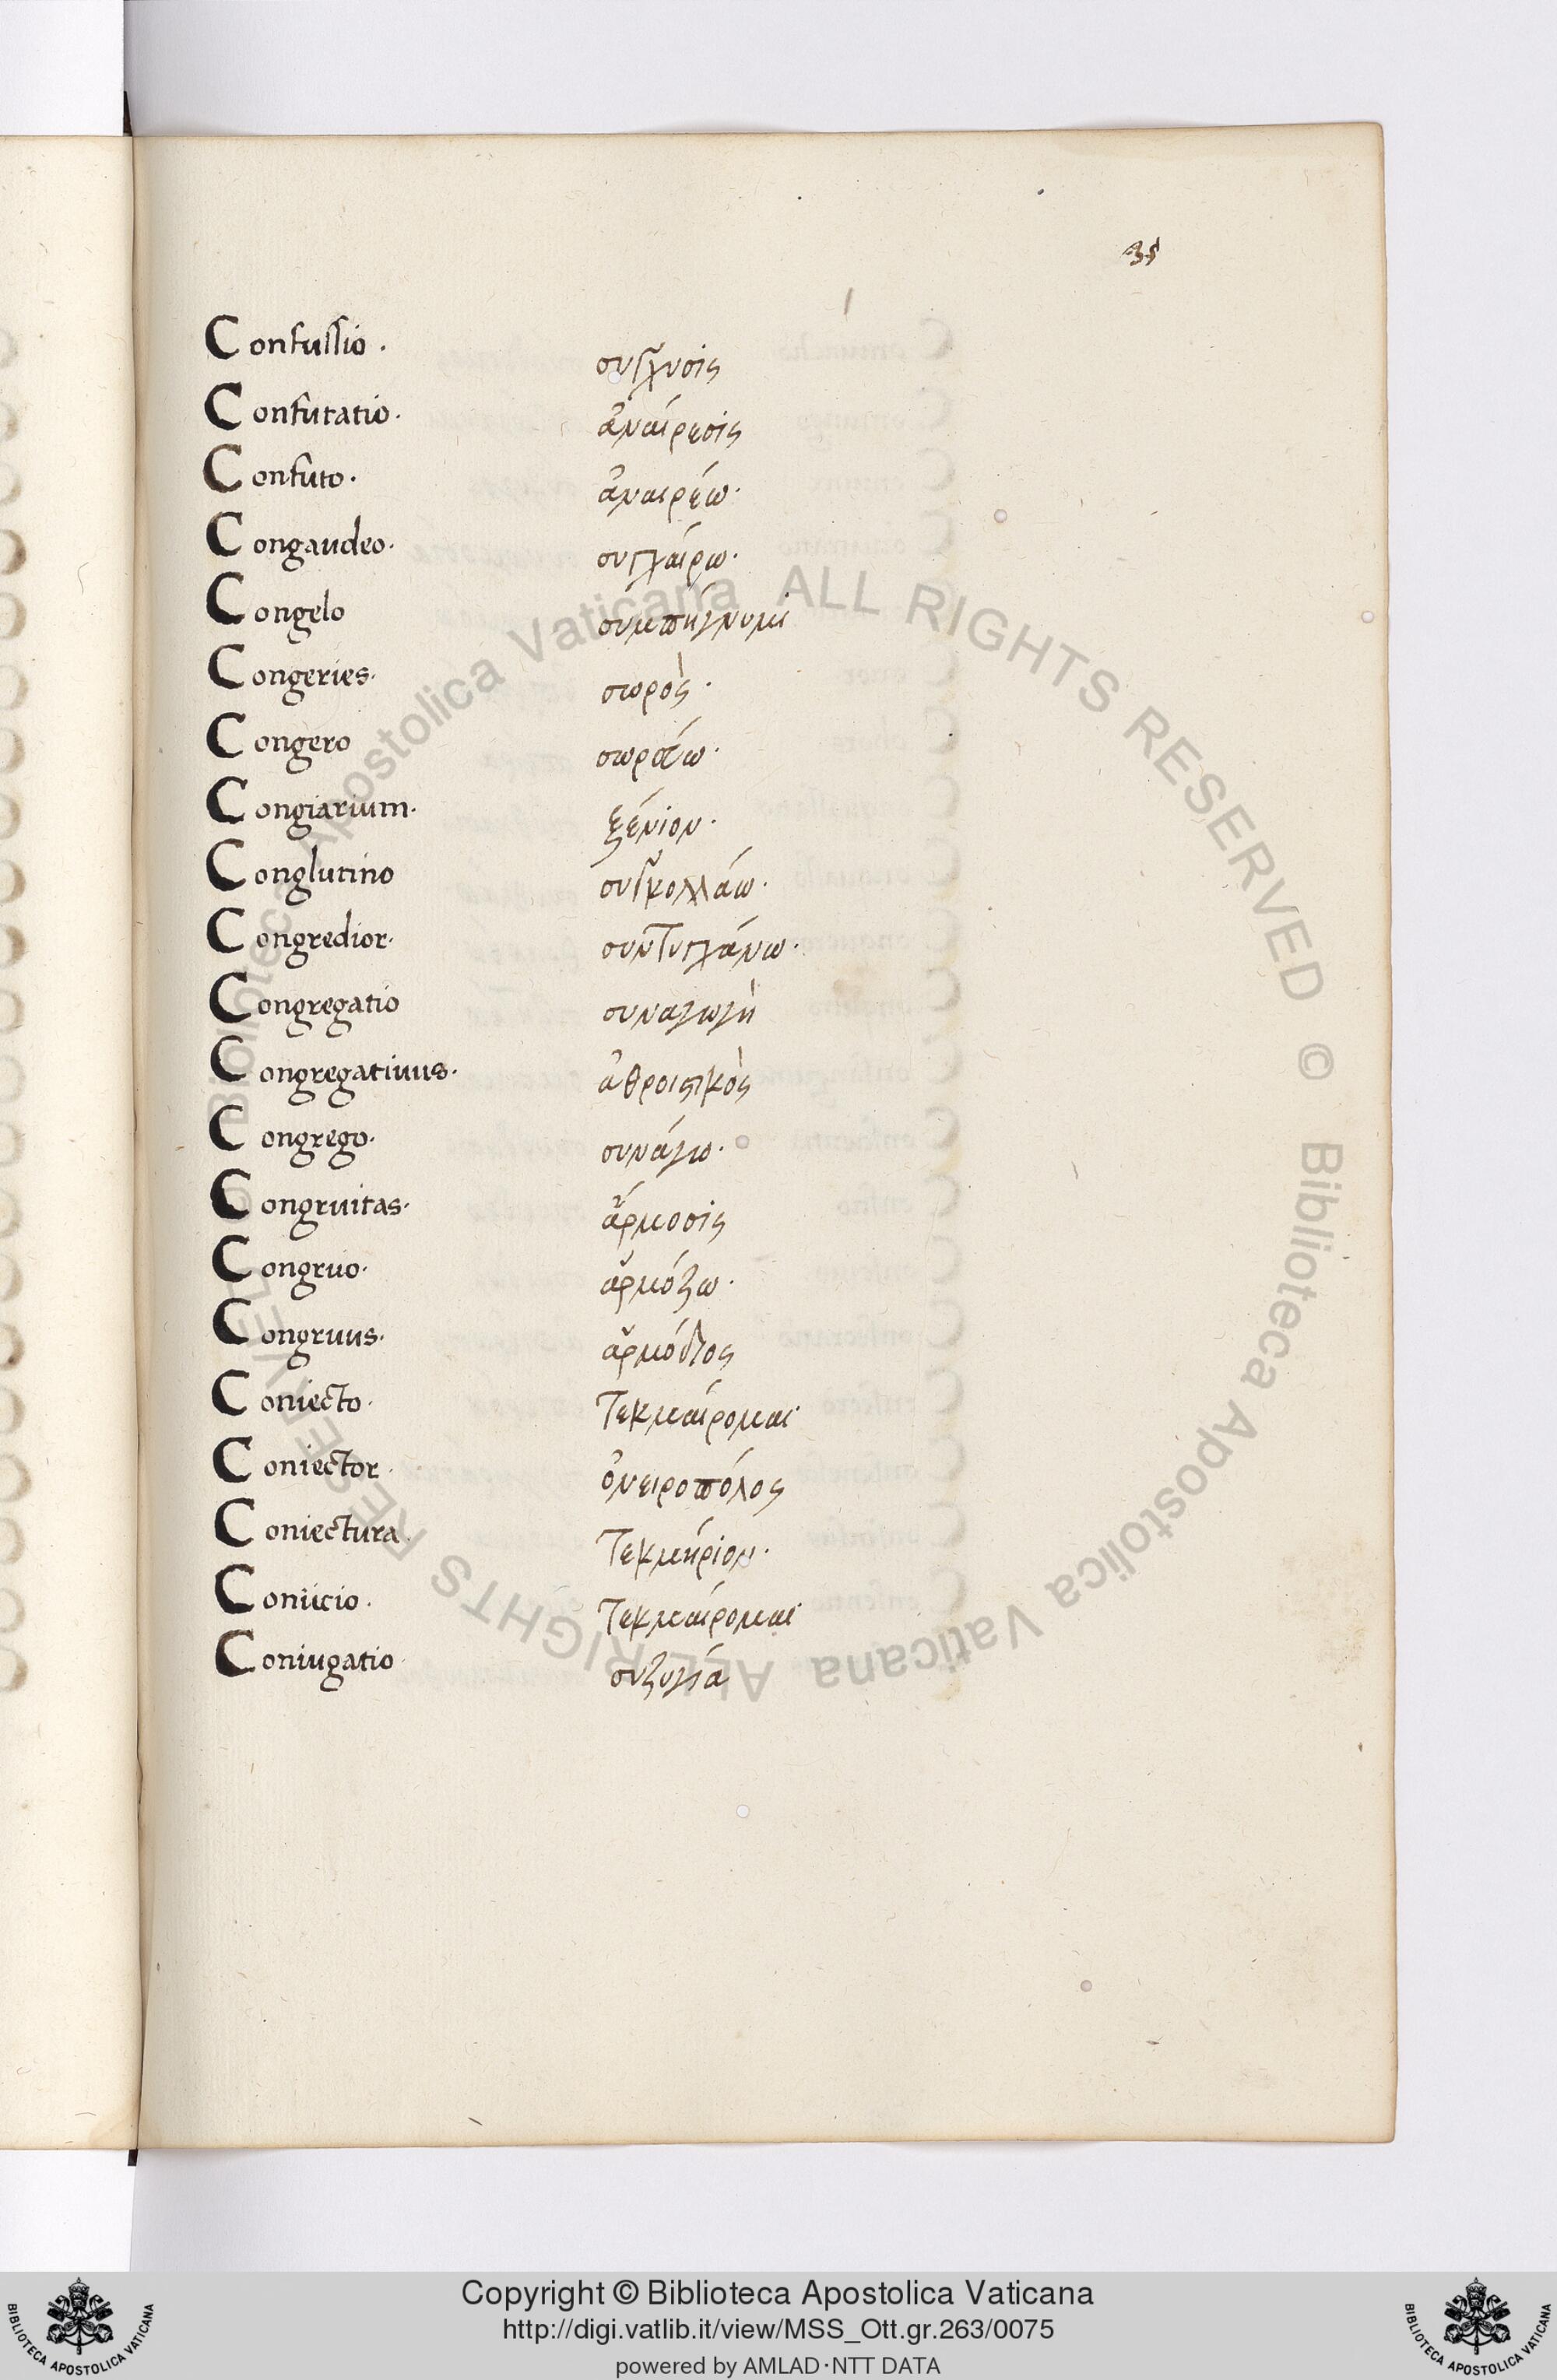 35
Confussio · σύγχυσις
Confutatio · ἀναίρεσις
Confuto · ἀναιρέω ·
Congaudeo · συγχαίρω ·
Congelo συμπήγνυμι
Congeries · σωρὸς ·
Congero
Congiarium · ξένιον ·
Conglutino συγκολλάω ·
Congredior · συντυγχάνω ·
Congregatio συναγωγὴ
Congregatiuus · ἀθροιστικὸς
Congrego · συνάγω ·
Congruitas · ἅρμοσις
Congruo · ἁρμόζω ·
Congruus · ἁρμόδιος
Coniecto · τεκμαίρομαι
Coniector · ὀνειροπόλος
Coniectura · τεκμήριον ·
Coniicio · τεκμαίρομαι
Coniugatio · συζυγία
Biblioteca Apostolica Vaticana ALL RIGHTS RESERVED © Biblioteca Apostolica Vaticana ALL RIGHTS RESERVED ©
Copyright © Biblioteca Apostolica Vaticana
http://digi.vatlib.it/view/MSS_Ott.gr.263/0075
powered by AMLAD·NTT DATA
BIBLIOTECA APOSTOLICA VATICANA
BIBLIOTECA APOSTOLICA VATICANA